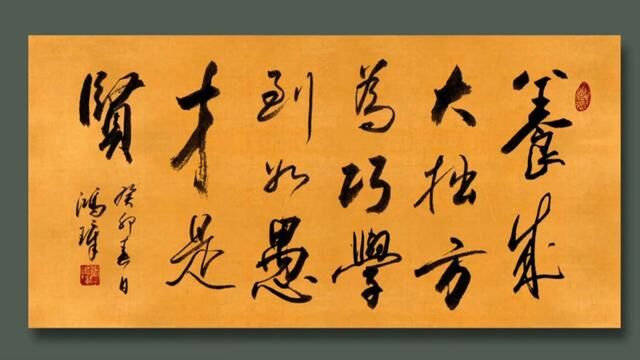 養成
大拙方
為巧學
到如愚
才是
賢
癸卯春日
鴻瑋